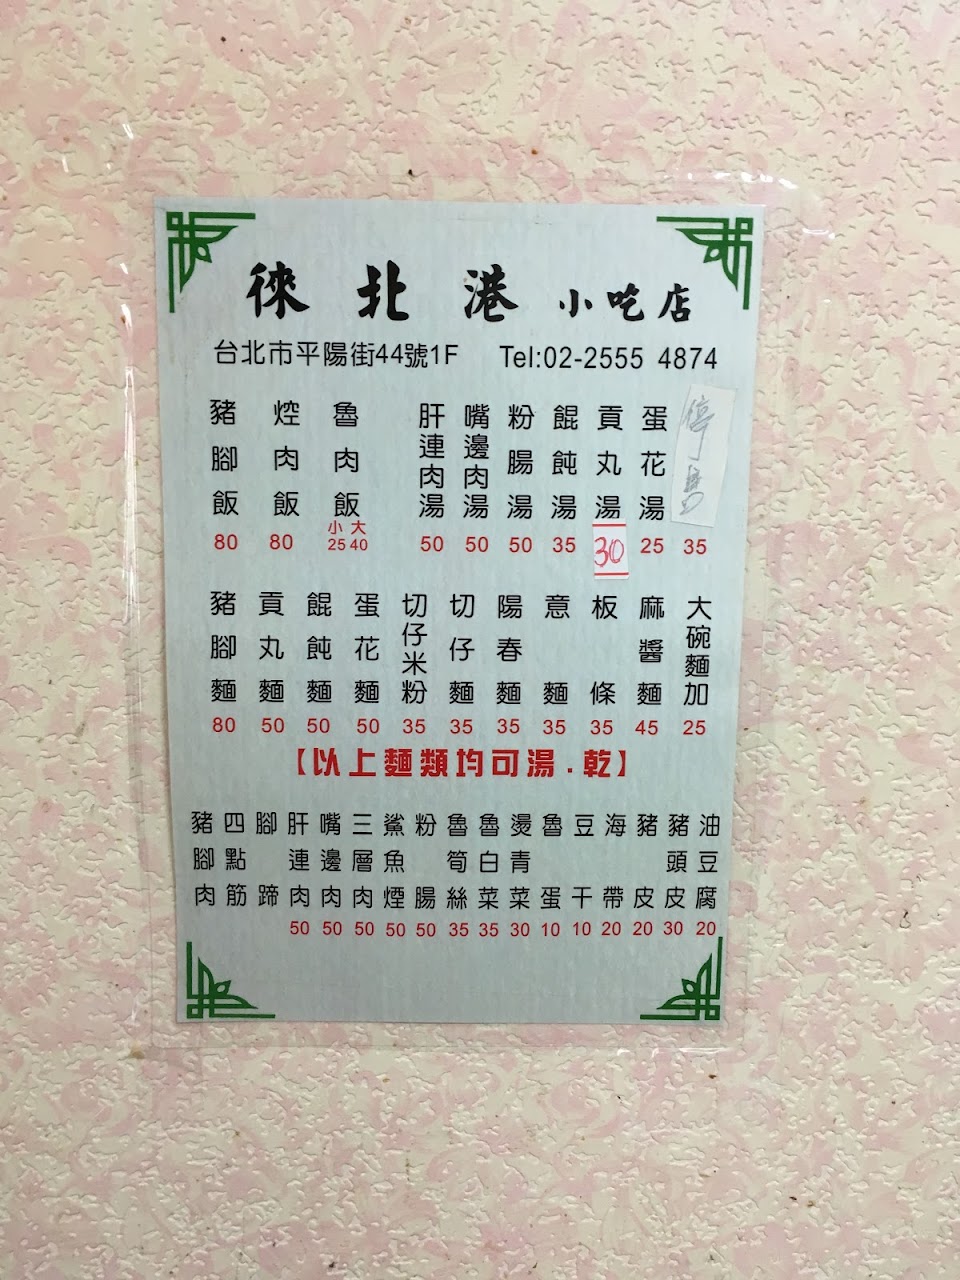 徠北港 小吃店
台北市平陽街44號1F Tel:02-2555 4874
豬腳飯 80
焢肉飯 80
魯肉飯 小25 大40
肝連肉湯 50
嘴邊肉湯 50
粉腸湯 50
餛飩湯 35
貢丸湯 30
蛋花湯 25
停 35
豬腳麵 80
貢丸麵 50
餛飩麵 50
蛋花麵 50
切仔米粉 35
切仔麵 35
陽春麵 35
意麵 35
板條 35
麻醬麵 45
大碗麵加 25
【以上麵類均可湯.乾】
豬腳肉
四點筋
腳蹄
肝連肉 50
嘴邊肉 50
三層肉 50
鯊魚煙 50
粉腸 50
魯筍絲 35
魯白菜 35
燙青菜 30
魯蛋 10
豆干 10
海帶 20
豬皮 20
豬頭皮 30
油豆腐 20